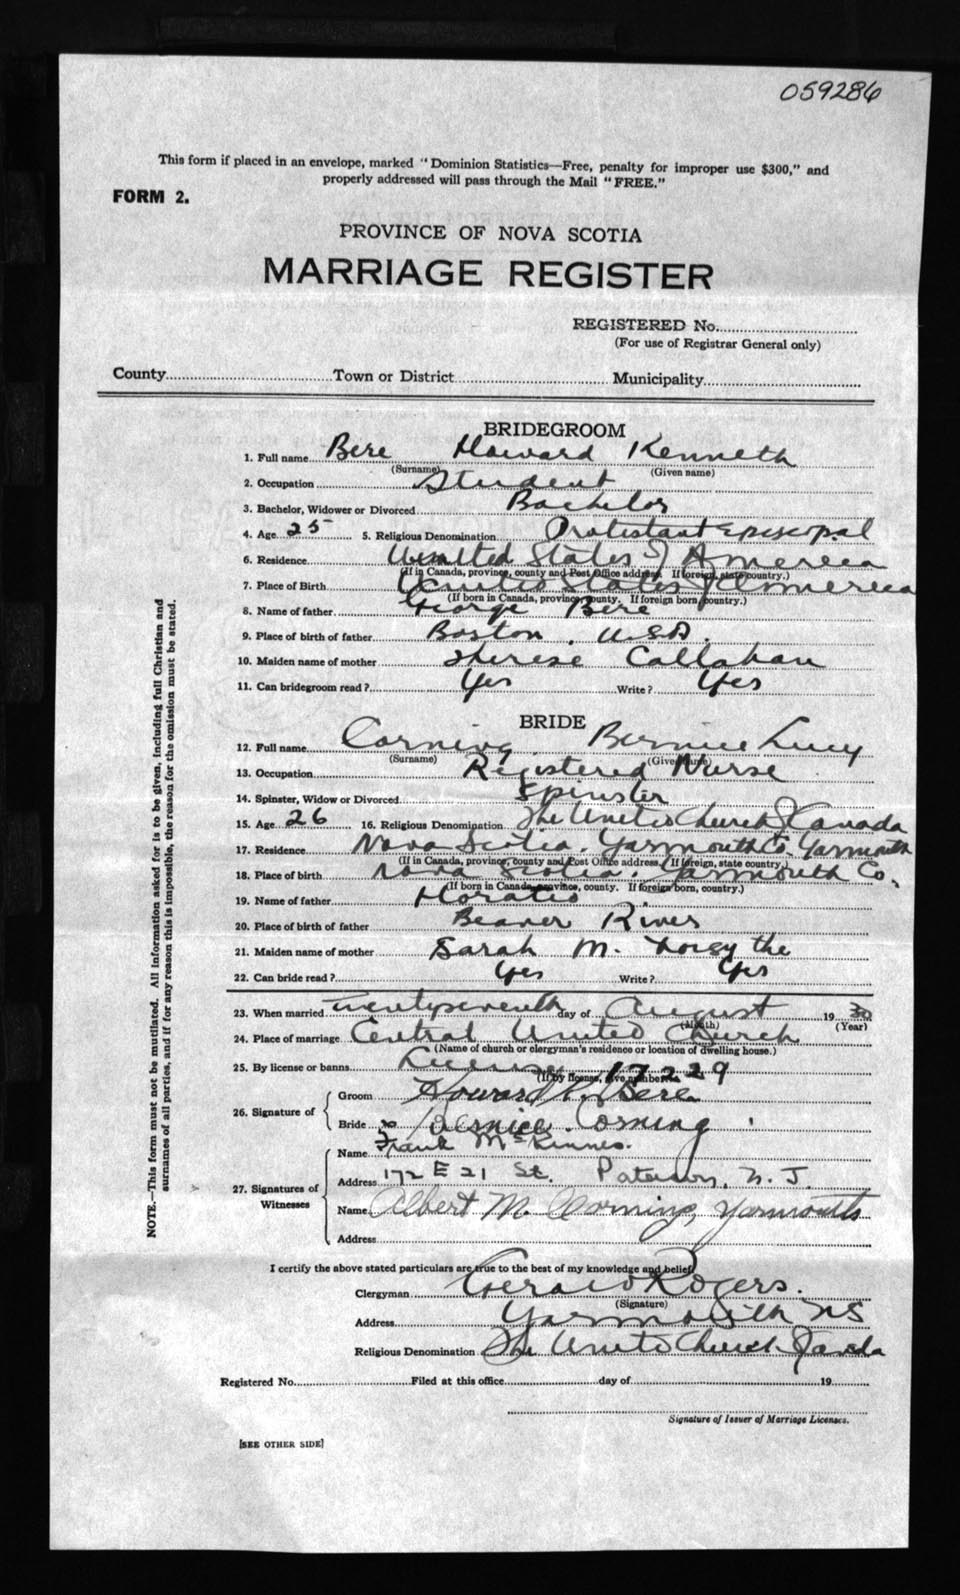 059286
This form if placed in an envelope, marked "Dominion Statistics—Free, penalty for improper use $300," and
properly addressed will pass through the Mail "FREE."
FORM 2.
PROVINCE OF NOVA SCOTIA
MARRIAGE REGISTER
REGISTERED No.
(For use of Registrar General only)
County Town or District Municipality
BRIDEGROOM
1. Full name Bere Howard Kenneth
(Surname) (Given name)
2. Occupation Student
3. Bachelor, Widower or Divorced Bachelor
4. Age 25 5. Religious Denomination Protestant Episcopal
6. Residence United States of America
(If in Canada, province, county and Post Office address. If foreign, state country.)
7. Place of Birth United States of America
(If born in Canada, province, county. If foreign born, country.)
8. Name of father George Bere
9. Place of birth of father Boston, U.S.A.
10. Maiden name of mother Therese Callahan
11. Can bridegroom read? Yes Write? Yes
BRIDE
12. Full name Corning Bernice Lucy
(Surname) (Given name)
13. Occupation Registered Nurse
14. Spinster, Widow or Divorced Spinster
15. Age 26 16. Religious Denomination The United Church of Canada
17. Residence Nova Scotia. Yarmouth Co. Yarmouth
(If in Canada, province, county and Post Office address. If foreign, state country.)
18. Place of birth Nova Scotia. Yarmouth Co.
(If born in Canada, province, county. If foreign born, country.)
19. Name of father Horatio
20. Place of birth of father Beaver River
21. Maiden name of mother Sarah M.
22. Can bride read? Yes Write? Yes
23. When married Twentyseventh day of August 19 30
(Month) (Year)
24. Place of marriage Central United Church
(Name of church or clergyman's residence or location of dwelling house.)
25. By license or banns License 17229
(If by license, give number)
26. Signature of Groom Howard K. Bere
Bride Bernice Corning
27. Signatures of Witnesses Name Frank McKinnes.
Address 172 E 21 St. Paterson, N. J.
Name Albert M. Corning, Yarmouth
Address
I certify the above stated particulars are true to the best of my knowledge and belief
Clergyman Gerald Rogers.
(Signature)
Address Yarmouth NS
Religious Denomination The United Church of Canada
Registered No. Filed at this office day of 19
Signature of Issuer of Marriage Licenses.
[SEE OTHER SIDE]
NOTE.—This form must not be mutilated. All information asked for is to be given, including full Christian and
surnames of all parties, and if for any reason this is impossible, the reason for the omission must be stated.